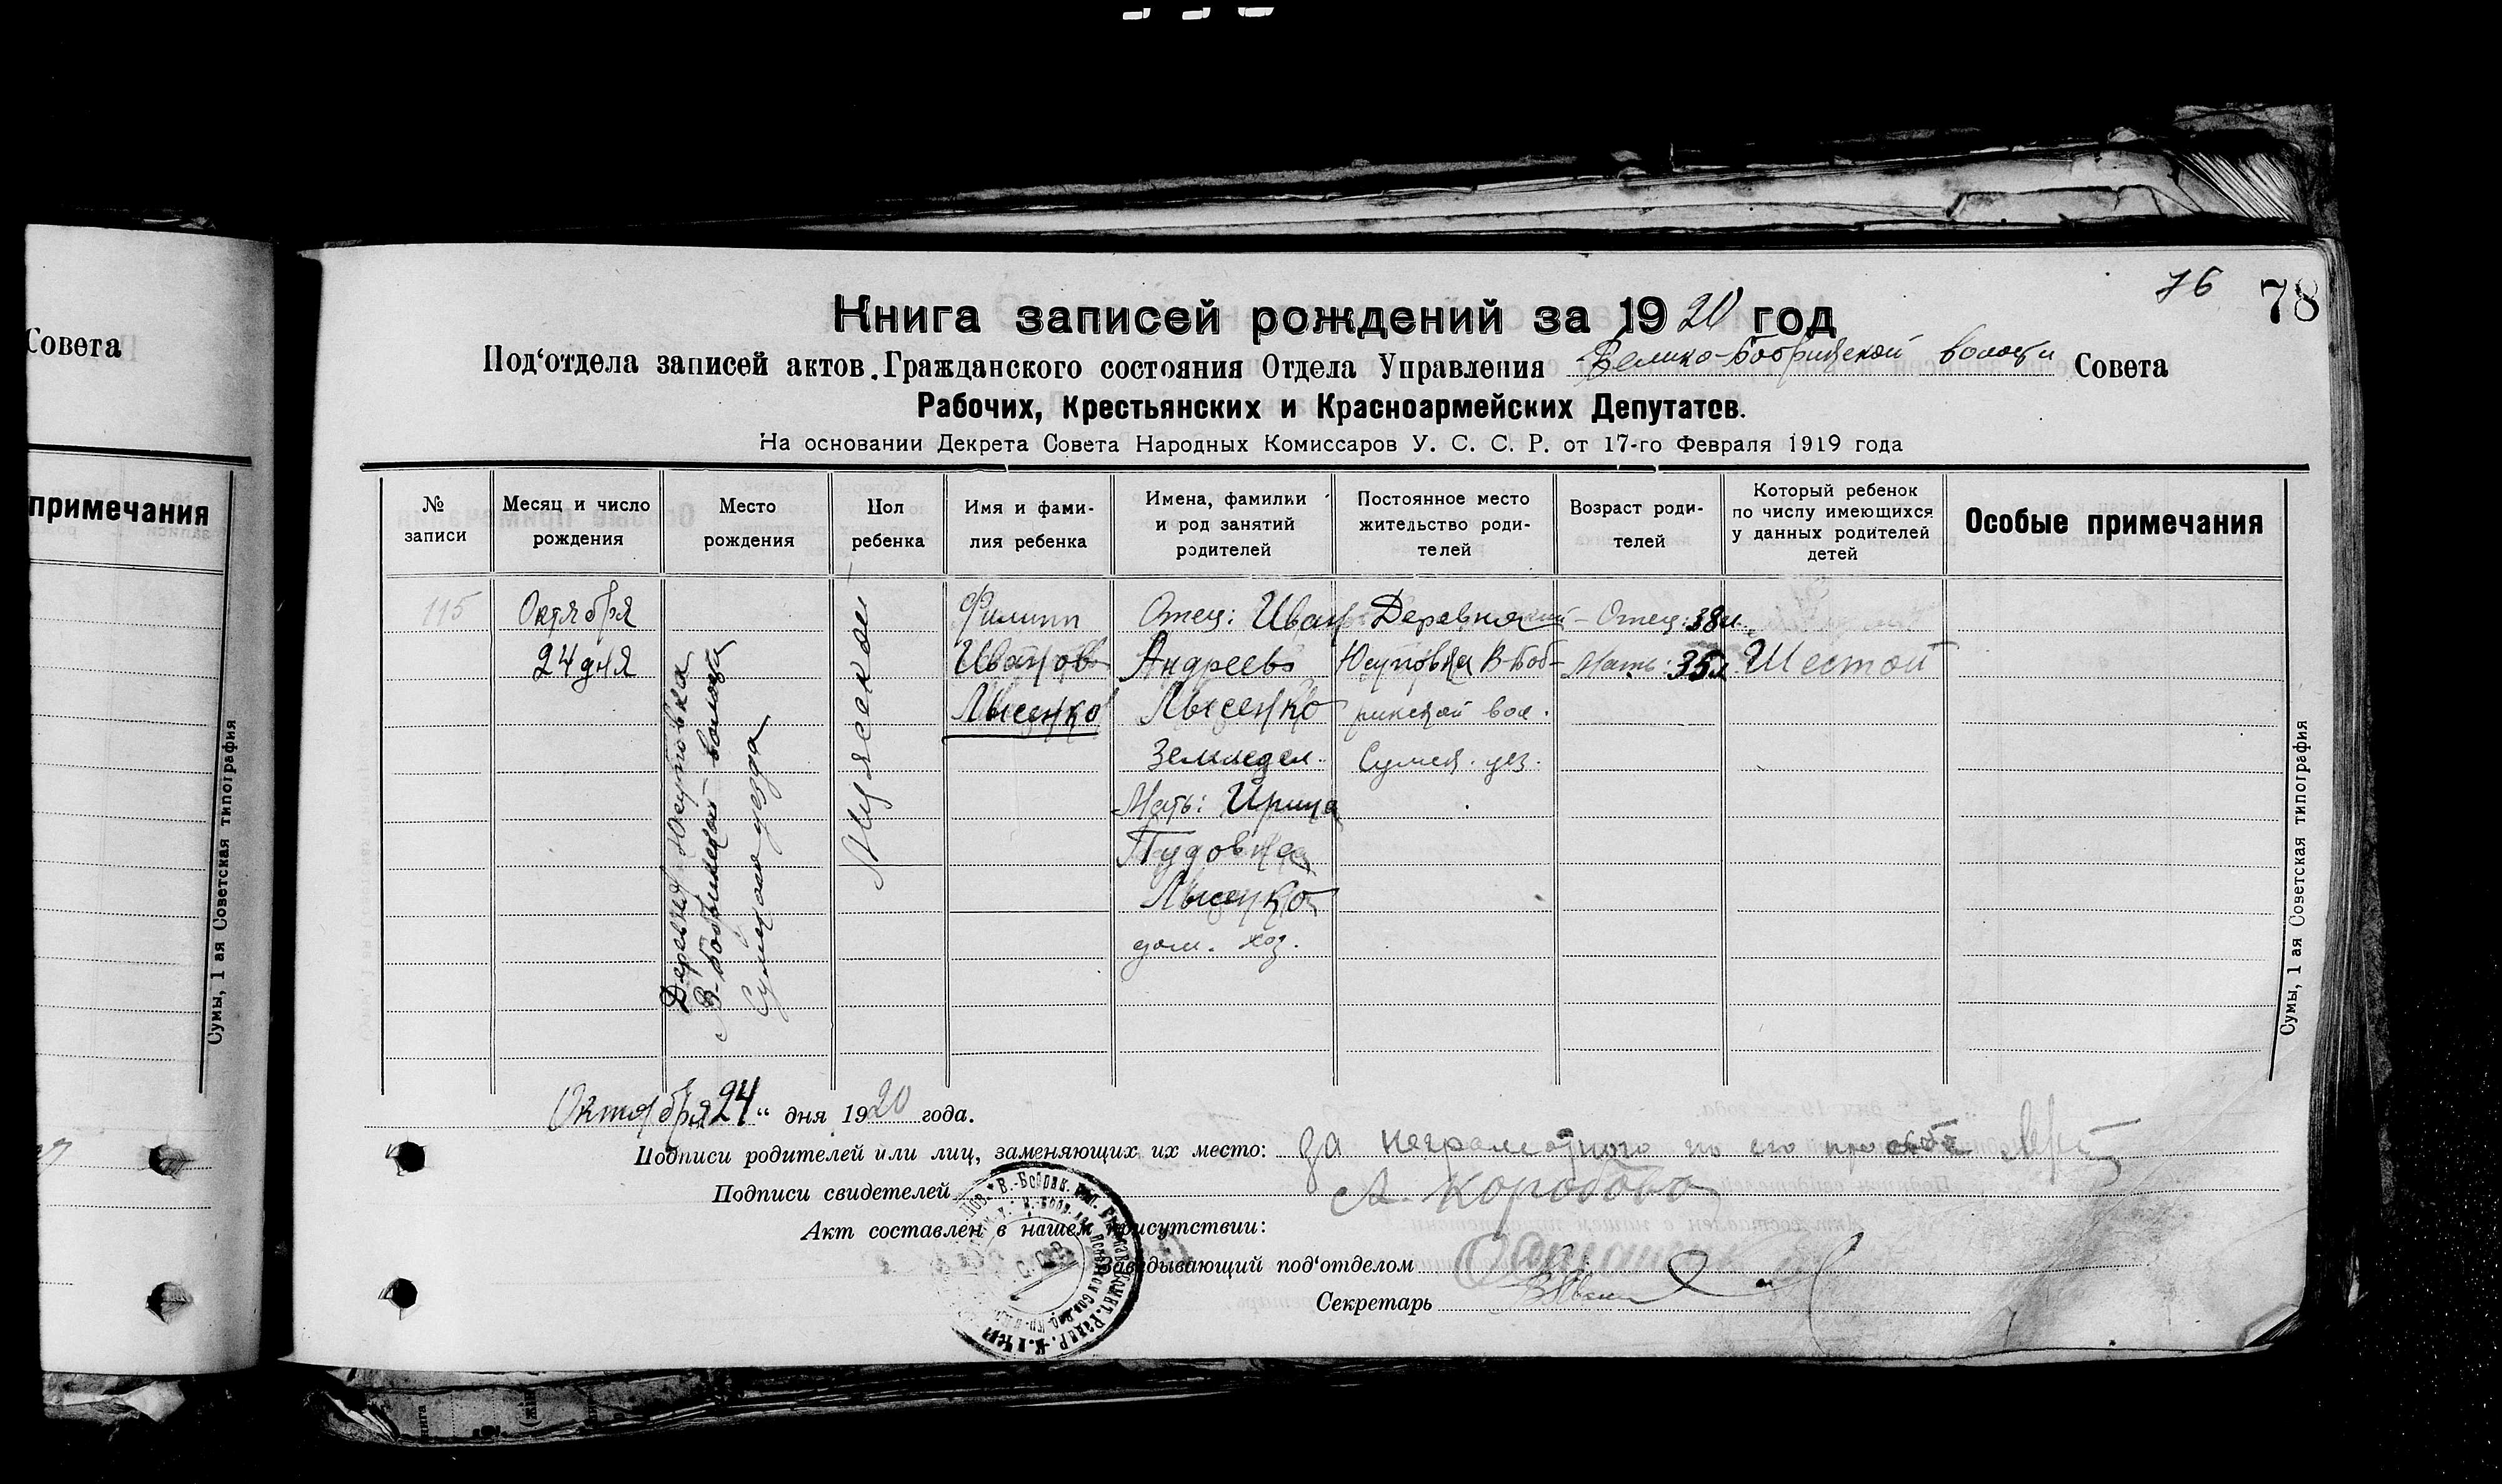 Совета
примечания
Сумы, 1 ая Советская типография
76
78
Книга записей рождений за 1920 год
Под‘отдела записей актов Гражданского состояния Отдела Управления Велико-Бобрикской волости Совета
Рабочих, Крестьянских и Красноармейских Депутатов.
На основании Декрета Совета Народных Комиссаров У. С. С. Р. от 17-го Февраля 1919 года
№ записи
Месяц и число рождения
Место рождения
Пол ребенка
Имя и фами-лия ребенка
Имена, фамилии и род занятий родителей
Постоянное место жительство роди-телей
Возраст роди-телей
Который ребенок по числу имеющихся у данных родителей детей
Особые примечания
115
Октября
24 дня
Деревня Юсуповка
В-Бобрикской волости
Сумского уезда
Мужской
Филипп
Иванов
Лысенко
Отец: Иван
Андреев
Лысенко
Земледел.
Мать: Ирина
Пудовна
Лысенко
дом. хоз.
Деревня
Юсуповка В-Боб-
рикской вол.
Сумск. уез.
Отец: 38 л.
Мать: 35 л.
Шестой
Сумы, 1 ая Советская типография
Октября 24 “ дня 1920 года.
Подписи родителей или лиц, заменяющих их место: за неграмотного по его просьбе
Подписи свидетелей
Акт составлен в нашем присутствии:
Заведывающий под‘отделом
Секретарь